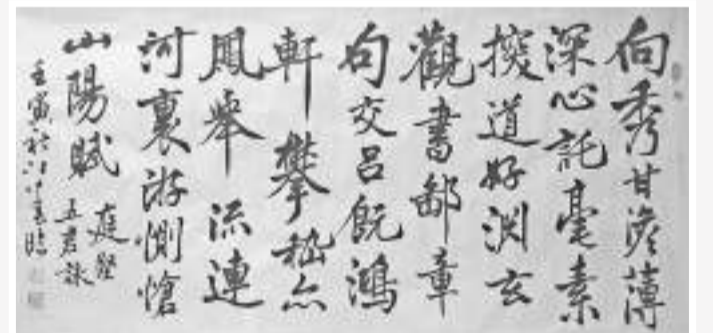 向秀甘澹薄
深心託毫素
探道好淵玄
觀書鄙章
句交呂既鴻
軒攀嵇亦
鳳舉流連
河裏游惻愴
山陽賦
庭堅
五君詠
壬寅秋臨